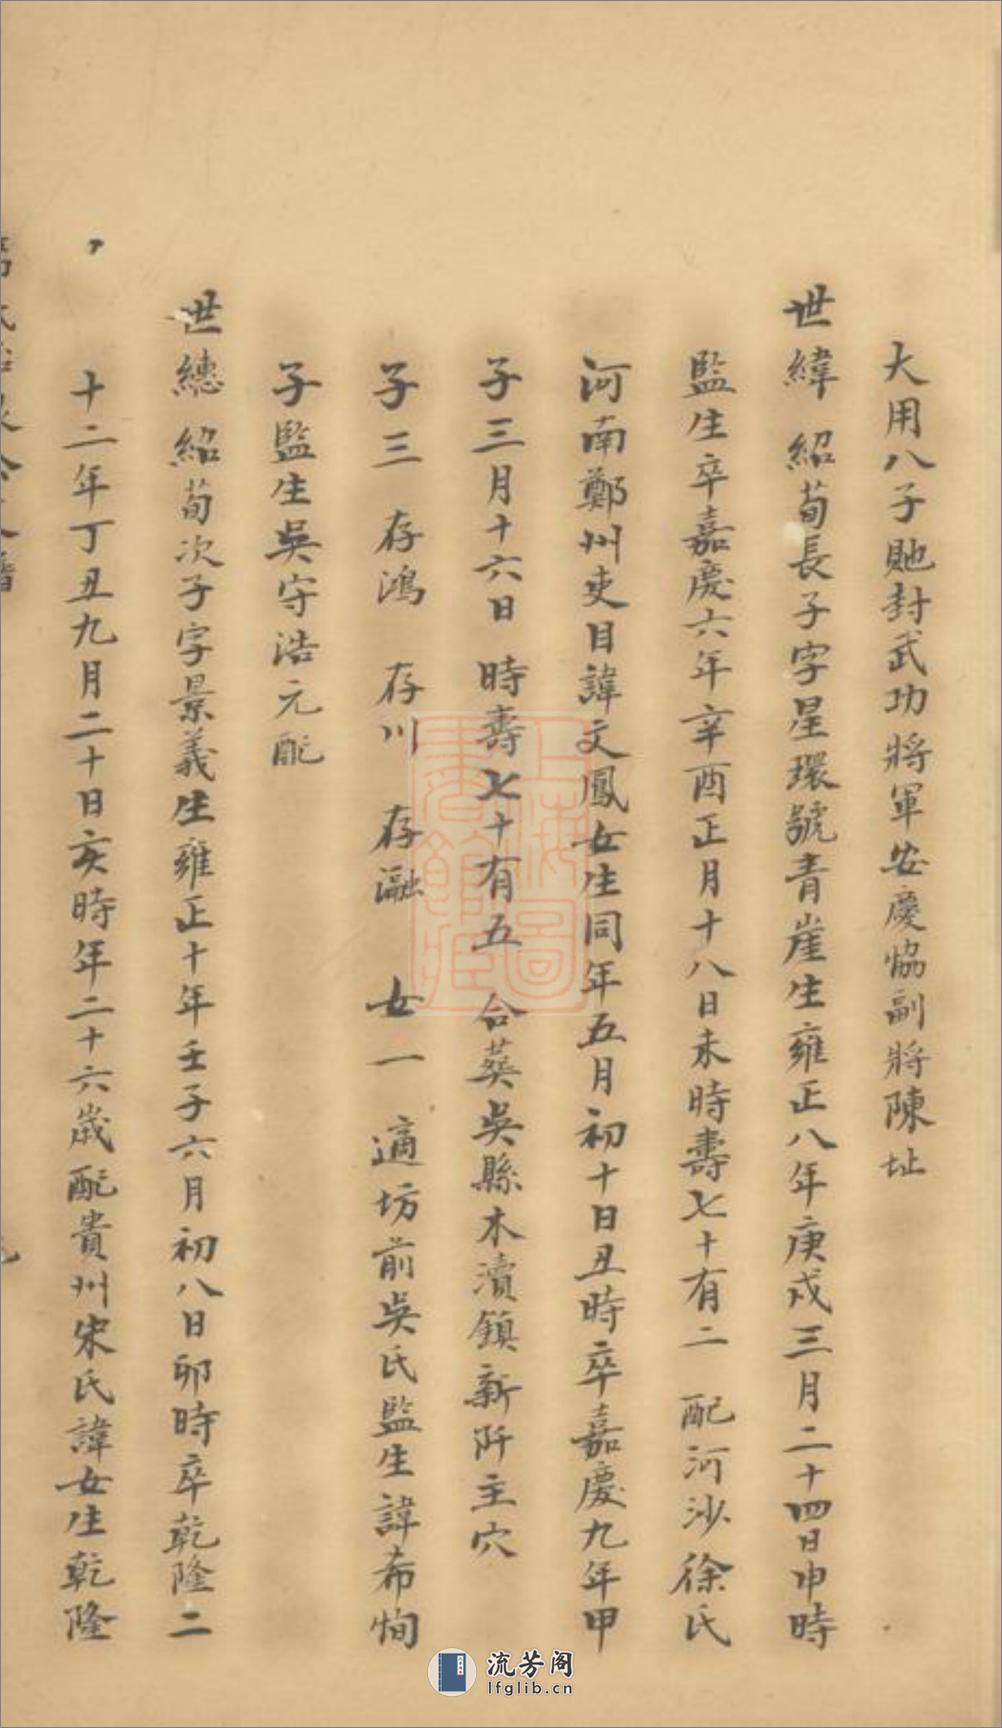 大用八子貤封武功將軍安慶協副將陳址
世緯 紹荀長子字星環號青崖生雍正八年庚戌三月二十四日申時
監生卒嘉慶六年辛酉正月十八日未時壽七十有二 配河沙徐氏
河南鄭州吏目諱文鳳女生同年五月初十日丑時卒嘉慶九年甲
子三月十六日 時壽七十有五 合葬吳縣木瀆鎮新阡主穴
子三 存鴻 存川 存瀜 女一 適坊前吳氏監生諱希恂
子監生吳守浩元配
世總 紹荀次子字景義生雍正十年壬子六月初八日卯時卒乾隆二
十二年丁丑九月二十日亥時年二十六歲配貴州宋氏諱女生乾隆
流芳阁
lfglib.cn